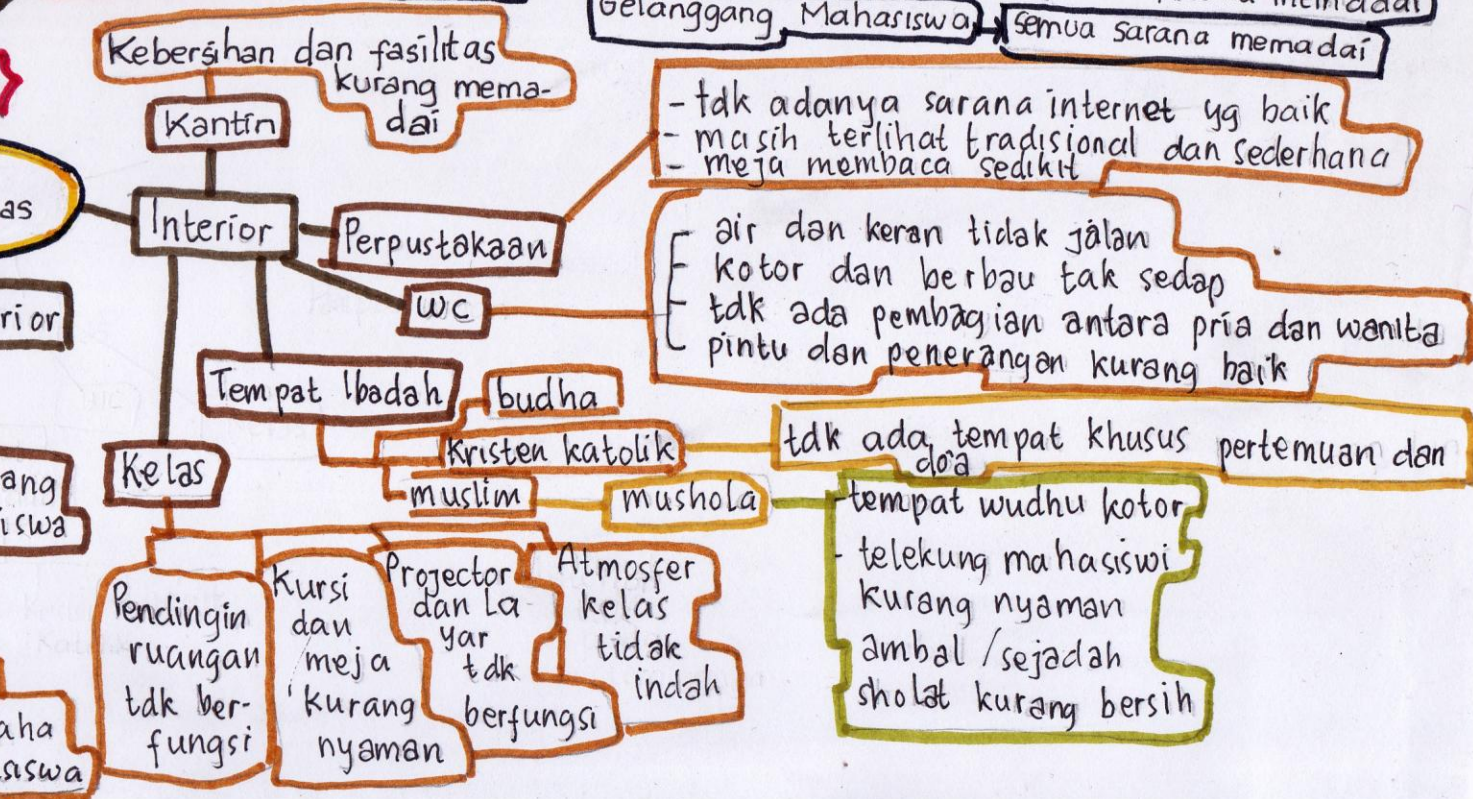 Gelanggang Mahasiswa
semua sarana memadai
Kebersihan dan fasilitas
kurang mema-
dai
Kantin
- tdk adanya sarana internet yg baik
- masih terlihat tradisional dan sederhana
- meja membaca sedikit
as
Interior
Perpustakaan
air dan keran tidak jalan
kotor dan berbau tak sedap
tdk ada pembagian antara pria dan wanita
pintu dan penerangan kurang baik
WC
rior
Tempat Ibadah
budha
Kristen katolik
tdk ada tempat khusus pertemuan dan
do'a
muslim
mushola
tempat wudhu kotor
- telekung mahasiswi
kurang nyaman
ambal / sejadah
sholat kurang bersih
Kelas
ang
iswa
Pendingin
ruangan
tdk ber-
fungsi
Kursi
dan
meja
kurang
nyaman
Projector
dan La-
yar
tdk
berfungsi
Atmosfer
kelas
tidak
indah
aha
siswa